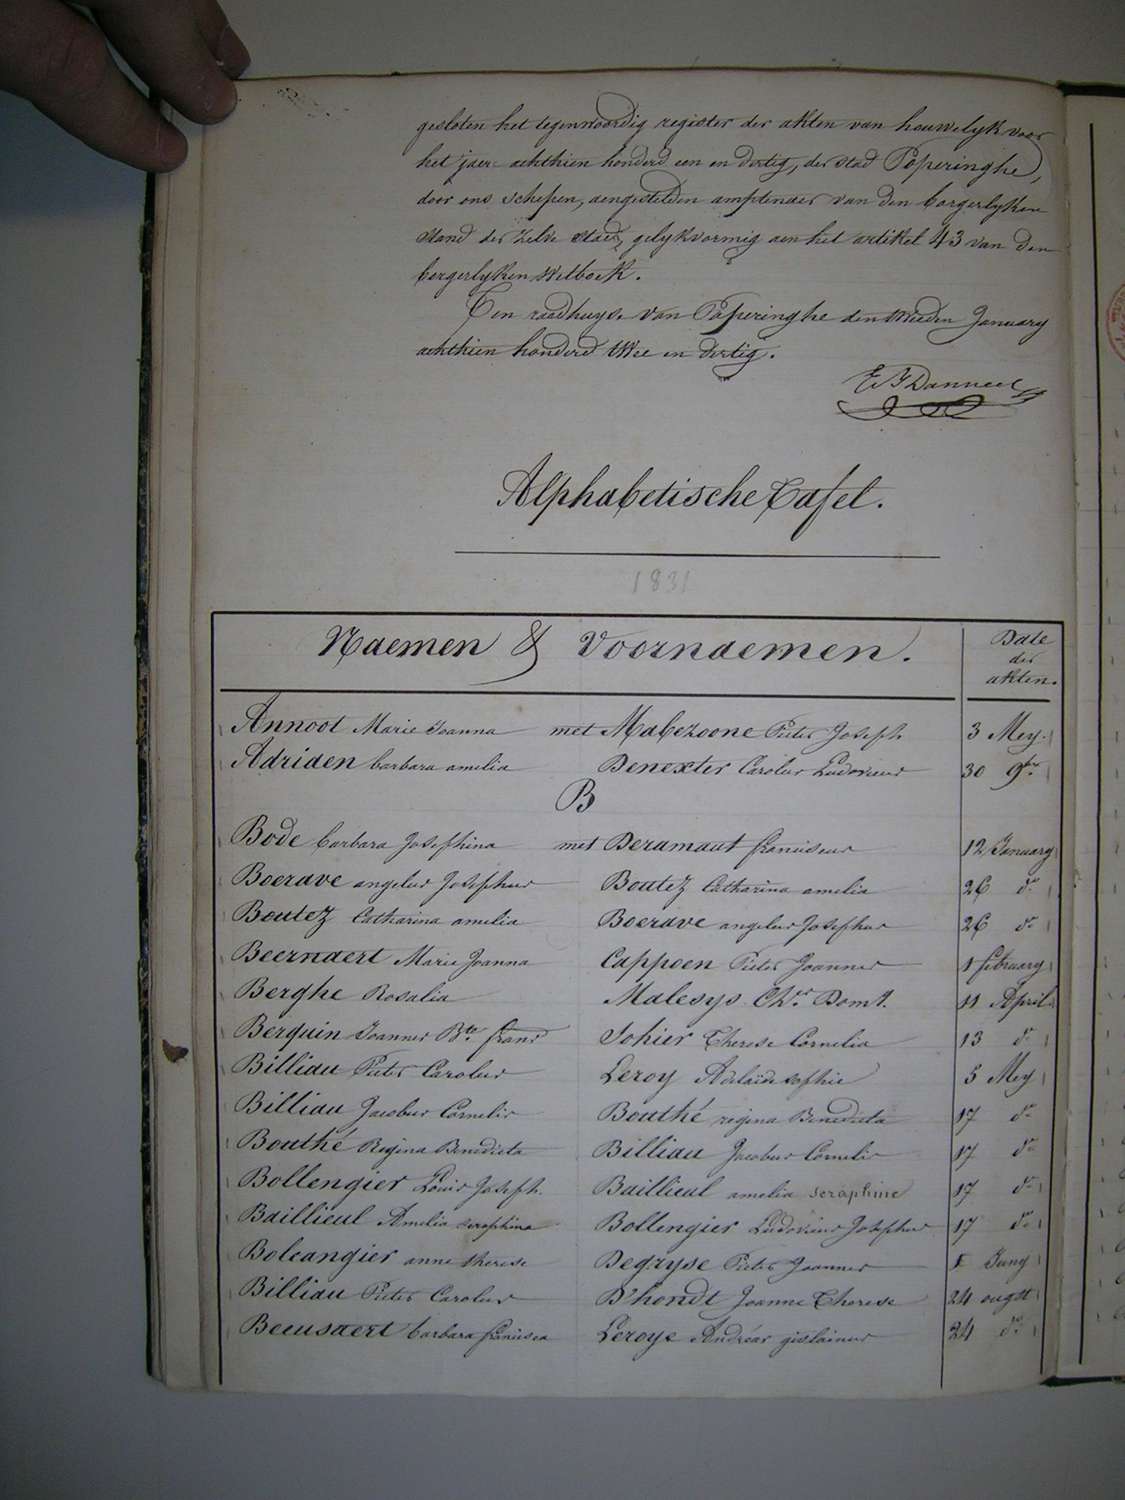 gesloten het tegenwoordig register der akten van houwelyk voor
het jaer achthien honderd een en dertig, der stad Poperinghe,
door ons schepen, aengestelden amptenaer van den borgerlyken
stand der zelve stad, gelykvormig aen het artikel 43 van den
borgerlyken wetboek.
Ten raedhuyse van Poperinghe den tweeden January
achthien honderd twee en dertig.
E. J. Danneel
Alphabetische Tafel.
1831
Naemen & Voornaemen. Date der akten.
Annoot Marie Joanna met Mabezoone Pieter Joseph 3 Mey.
Adriaen barbara amelia Denexter Carolus Ludovicus 30 9bre
B
Bode barbara Josephina met Deramaut franciscus 12 January
Boerave angelus Josephus Boutez Catharina amelia 26 do
Boutez Catharina amelia Boerave angelus Josephus 26 do
Beernaert Marie Joanna Cappoen Pieter Joannes 1 february
Berghe Rosalia Malesys Chr. Domt. 11 April
Berquin Joannes Bte. frans Johier Therese Cornelia 13 do
Billiau Pieter Carolus Leroy Adelaïde sophie 5 Mey
Billiau Jacobus Cornelis Bouthé regina Benedicta 17 do
Bouthé Regina Benedicta Billiau Jacobus Cornelis 17 do
Bollengier Louis Joseph. Baillieul amelia seraphine 17 do
Baillieul Amelia seraphina Bollengier Ludovicus Josephus 17 do
Boleangier anne therese Degryse Pieter Joannes 1 Juny
Billiau Pieter Carolus D'hondt Joanne Therese 24 ougst
Beeusaert barbara francisca Leroye Andréas gislainus 24 do